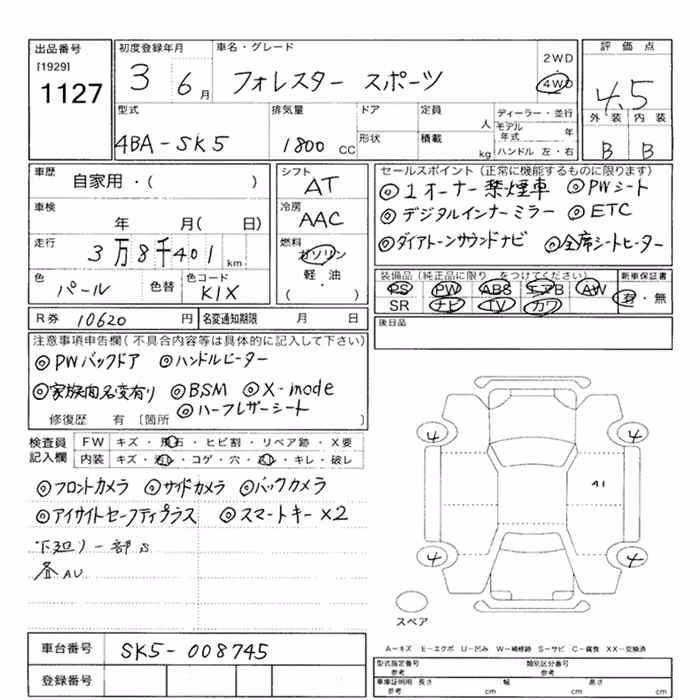 出品番号
[1929]
1127
初度登録年月
3 6月
車名・グレード
フォレスター スポーツ
2WD
4WD
評価点
4.5
外装 内装
B B
型式
4BA-SK5
排気量
1800 CC
ドア
形状
定員
人
積載
kg
ディーラー・並行
モデル年式 年
ハンドル 左・右
車歴
自家用・( )
車検
年 月( 日)
走行
3万8千401km
色
パール
色替
色コード
K1X
シフト
AT
冷房
AAC
燃料
ガソリン
軽・油
( )
セールスポイント(正常に機能するものに限ります)
◎1オーナー 禁煙車 ◎PWシート
◎デジタルインナーミラー ◎ETC
◎ダイアトーンサウンドナビ ◎全席シートヒーター
装備品(純正品に限り をつけてください)
PS PW ABS エアB AW
SR ナビ TV カワ
新車保証書
有・無
R券 10620 円
名変通知期限 月 日
後日品
注意事項申告欄(不具合内容等は具体的に記入して下さい)
◎PWバックドア ◎ハンドルヒーター
◎家族内名変有り ◎BSM ◎X-mode
◎ハーフレザーシート
修復歴 有〔箇所 〕
検査員記入欄
FW キズ・飛石・ヒビ割・リペア跡・X要
内装 キズ・汚レ・コゲ・穴・スレ・キレ・破レ
◎フロントカメラ ◎サイドカメラ ◎バックカメラ
◎アイサイトセーフティプラス ◎スマートキー×2
下廻り一部S
AU
4 4
A1
4 4
スペア
車台番号
SK5-008745
登録番号
A-キズ E-エクボ U-凹み W-補修跡 S-サビ C-腐食 XX-交換済
型式指定番号
参考
類別区分番号
参考
車庫証明用 長さ 幅 高さ
参考 cm cm cm